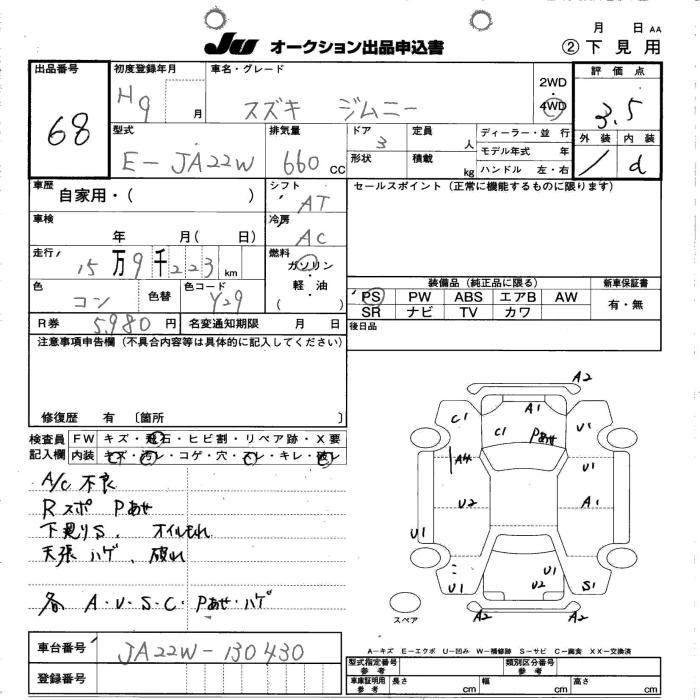 月 日 AA
JU オークション出品申込書 ② 下見用
出品番号 68
初度登録年月 H9 月
車名・グレード スズキ ジムニー
2WD・4WD
評価点 3.5
外装 / 内装 d
型式 E-JA22W
排気量 660 cc
ドア 3
定員 人
形状
積載 kg
ディーラー・並行
モデル年式 年
ハンドル 左・右
車歴 自家用・( )
シフト AT
セールスポイント(正常に機能するものに限ります)
車検 年 月( 日)
冷房 AC
走行 15万9千223km
燃料 ガソリン・軽油 ( )
色 コン 色替
色コード Y29
装備品(純正品に限る)
PS PW ABS エアB AW
SR ナビ TV カワ
新車保証書 有・無
R券 5,980円 名変通知期限 月 日
後日品
注意事項申告欄(不具合内容等は具体的に記入してください)
修復歴 有 〔箇所 〕
検査員記入欄
FW キズ・飛石・ヒビ割・リペア跡・X要
内装 キズ・汚レ・コゲ・穴・スレ・キレ・破レ
A/C 不良
Rスポ Pあせ
下廻りS、オイルもれ
天張ハゲ、破れ
各 A・U・S・C・Pあせ・ハゲ
A2
C1 A1 U1
C1 Pあせ
A4 U1
U2 A1
U1
U1
U1 U2 S1
A2 A2
スペア
A-キズ E-エクボ U-凹み W-補修跡 S-サビ C-腐食 XX-交換済
車台番号 JA22W-130430
登録番号
型式指定番号 参考
類別区分番号 参考
車庫証明用 参考 長さ cm 幅 cm 高さ cm